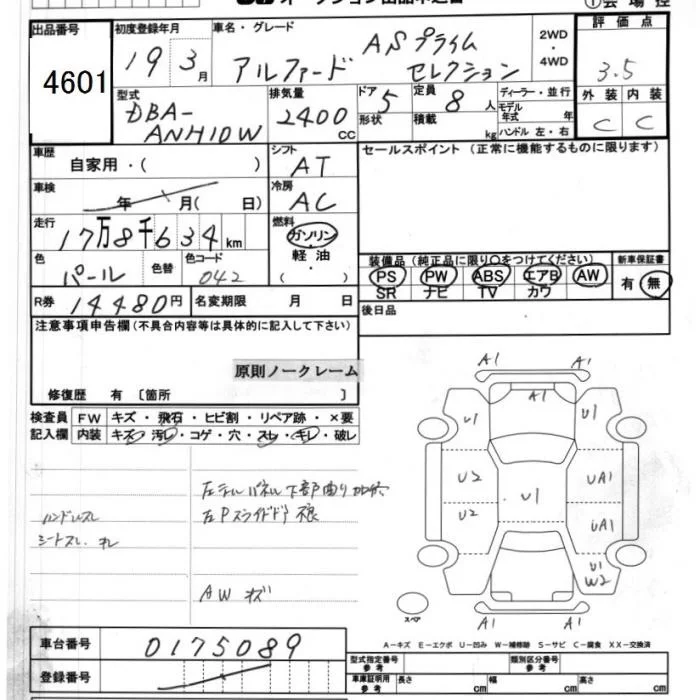 出品番号
4601
初度登録年月
19 3月
車名・グレード
アルファード
ASプライム
セレクション
2WD
・
4WD
評価点
3.5
外装 内装
C C
型式
DBA-
ANH10W
排気量
2400
CC
ドア 5
形状
定員 8人
積載 kg
ディーラー・並行
モデル
年式 年
ハンドル 左・右
車歴
自家用・( )
シフト
AT
セールスポイント(正常に機能するものに限ります)
車検
年 月( 日)
冷房
AC
走行
17万8千634km
燃料
ガソリン
軽油
( )
色
パール
色替
色コード
042
装備品(純正品に限り○をつけてください)
PS PW ABS エアB AW
SR ナビ TV カワ
新車保証書
有・無
R券
14480円
名変期限 月 日
後日品
注意事項申告欄(不具合内容等は具体的に記入して下さい)
原則ノークレーム
修復歴 有〔箇所 〕
検査員
記入欄
FW キズ・飛石・ヒビ割・リペア跡・×要
内装 キズ・汚レ・コゲ・穴・スレ・キレ・破レ
左テールパネル下部曲り
左Pスライドドア
ハンドルスレ
シートスレ.キレ
AWキズ
A1 A1
A1
U1 U1
U2 UA1
U1
U2 UA1
U1
W2
スペア
A1 A1
A−キズ E−エクボ U−凹み W−補修跡 S−サビ C−腐食 XX−交換済
車台番号
0175089
登録番号
型式指定番号
参考
類別区分番号
参考
車庫証明用
参考
長さ cm
幅 cm
高さ cm